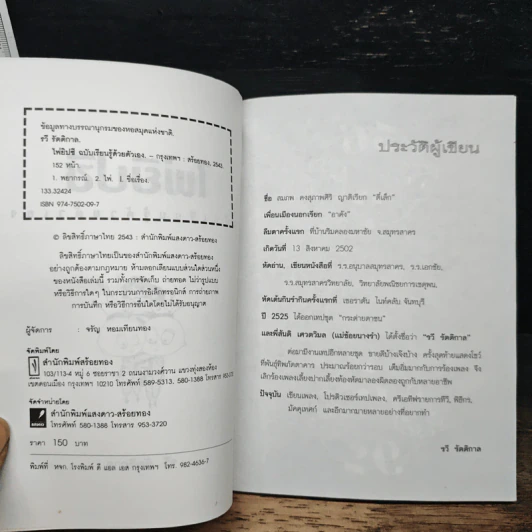 ข้อมูลทางบรรณานุกรมของหอสมุดแห่งชาติ.
รวี รัตติกาล.
ไพ่ยิปซี ฉบับเรียนรู้ด้วยตัวเอง. -- กรุงเทพฯ : สร้อยทอง, 2543.
152 หน้า.
1. พยากรณ์. 2. ไพ่. I. ชื่อเรื่อง.
133.32424
ISBN 974-7502-09-7
© ลิขสิทธิ์ภาษาไทย 2543 : สำนักพิมพ์แสงดาว-สร้อยทอง
ลิขสิทธิ์ภาษาไทยเป็นของสำนักพิมพ์แสงดาว-สร้อยทอง
อย่างถูกต้องตามกฎหมาย ห้ามลอกเลียนแบบส่วนใดส่วนหนึ่ง
ของหนังสือเล่มนี้ รวมทั้งการจัดเก็บ ถ่ายทอด ไม่ว่ารูปแบบ
หรือวิธีการใดๆ ในกระบวนการอิเล็คทรอนิกส์ การถ่ายภาพ
การบันทึก หรือวิธีการอื่นใดโดยไม่ได้รับอนุญาต
ผู้จัดการ : จรัญ หอมเทียนทอง
จัดพิมพ์โดย
สำนักพิมพ์สร้อยทอง
103/113-4 หมู่ 6 ซอยราชา 2 ถนนงามวงศ์วาน แขวงทุ่งสองห้อง
เขตดอนเมือง กรุงเทพฯ 10210 โทรศัพท์ 589-5313, 580-1388
จัดจำหน่ายโดย
สำนักพิมพ์แสงดาว-สร้อยทอง
โทรศัพท์ 580-1388 โทรสาร 953-3720
ราคา 150 บาท
พิมพ์ที่ หจก. โรงพิมพ์ ดี แอล เอส กรุงเทพฯ โทร. 982-4636-7
ประวัติผู้เขียน
ชื่อ สมภพ คงสุภาพศิริ ญาติเรียก "ตี๋เล็ก"
เพื่อนเมืองนอกเรียก "อาตัง"
ลืมตาครั้งแรก ที่บ้านริมคลองมหาชัย จ.สมุทรสาคร
เกิดวันที่ 13 สิงหาคม 2502
หัดอ่าน, เขียนหนังสือที่ ร.ร.อนุบาลสมุทรสาคร, ร.ร.เอกชัย,
ร.ร.สมุทรสาครวิทยาลัย, วิทยาลัยพณิชยการเชตุพน,
หัดเต้นกินรำกินครั้งแรกที่ เชอราตัน ไนท์คลับ จันทบุรี
ปี 2525 ได้ออกเทปชุด "กระต่ายดาชน"
และพี่สันติ เศวตวิมล (แม่ช้อยนางรำ) ได้ตั้งชื่อว่า "รวี รัตติกาล"
ต่อมามีงานเทปอีกหลายชุด ขายดีบ้างเจ๊งบ้าง ครั้งสุดท้ายแสดงโชว์
ที่พันธุ์ทิพโลคาคาร ประมาณร้อยกว่ารอบ เต็มอิ่มมากกับการร้องเพลง จึง
เลิกร้องเพลงเลี้ยงปากเลี้ยงท้องหันมาลองผิดลองถูกกับหลายอาชีพ
ปัจจุบัน เขียนเพลง, โปรดิวเซอร์เทปเพลง, ครีเอทีฟรายการทีวี, พิธีกร,
มัคคุเทศก์ และอีกมากมายหลายอย่างที่อยากทำ
รวี รัตติกาล